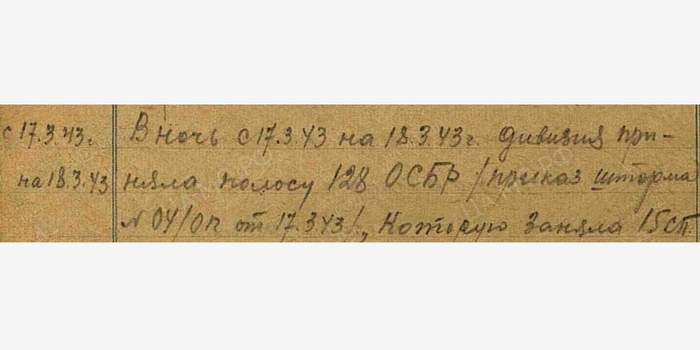 с 17.3.43г. В ночь с 17.3.43 на 18.3.43г. дивизия при-
на 18.3.43 няла полосу 128 ОСБР /приказ шторма
N 04/оп от 17.3.43/, которую заняла 15 СП